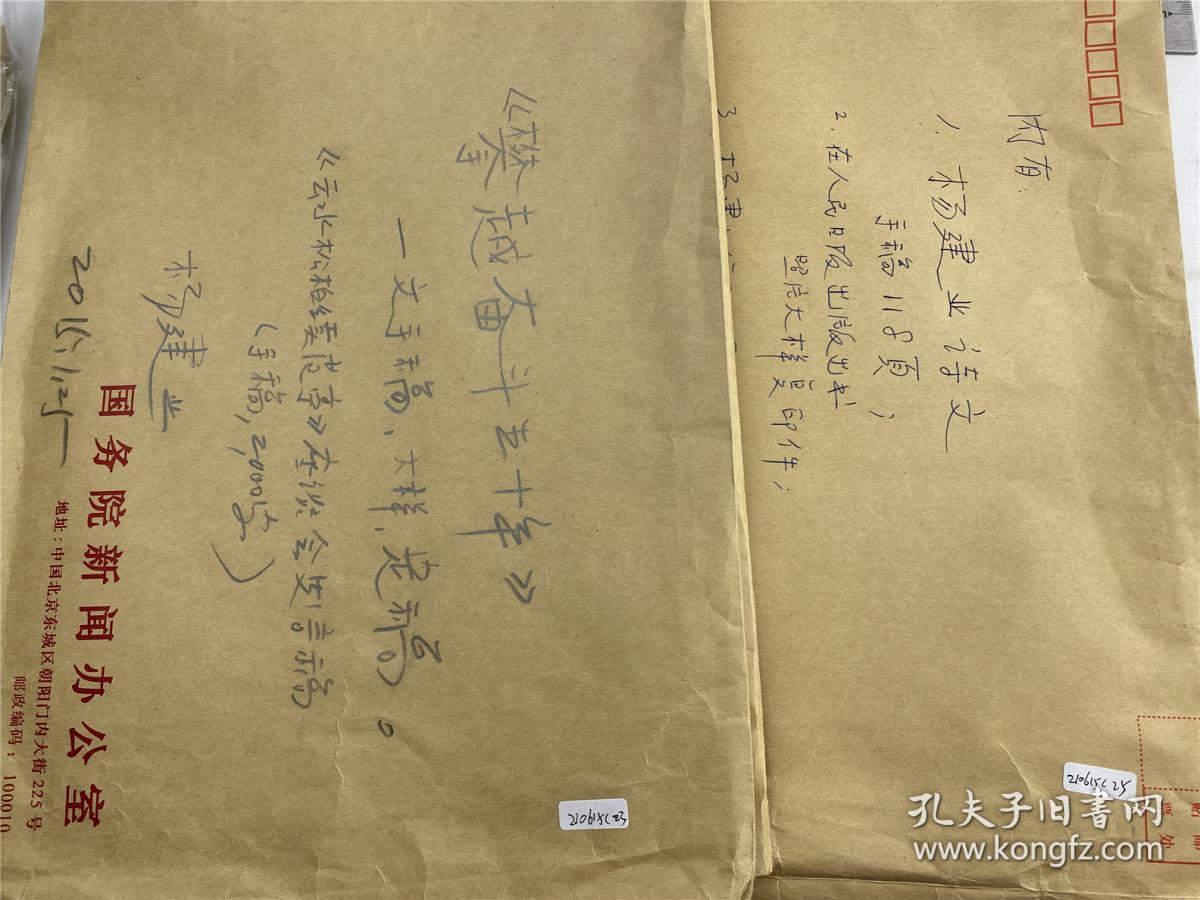 内有:
1. 杨建业诗文
手稿118页;
2. 在人民日报出版出书
照片大样复印件;
3. 杨建
《攀越奋斗五十年》
一文手稿、大样、定稿。
《云水松柏续范亭》座谈会发言稿
(手稿,2,000字)
杨建业
国务院新闻办公室
地址:中国北京东城区朝阳门内大街225号
邮政编码:100010
210615C25
210615C23
孔夫子旧书网
www.kongfz.com